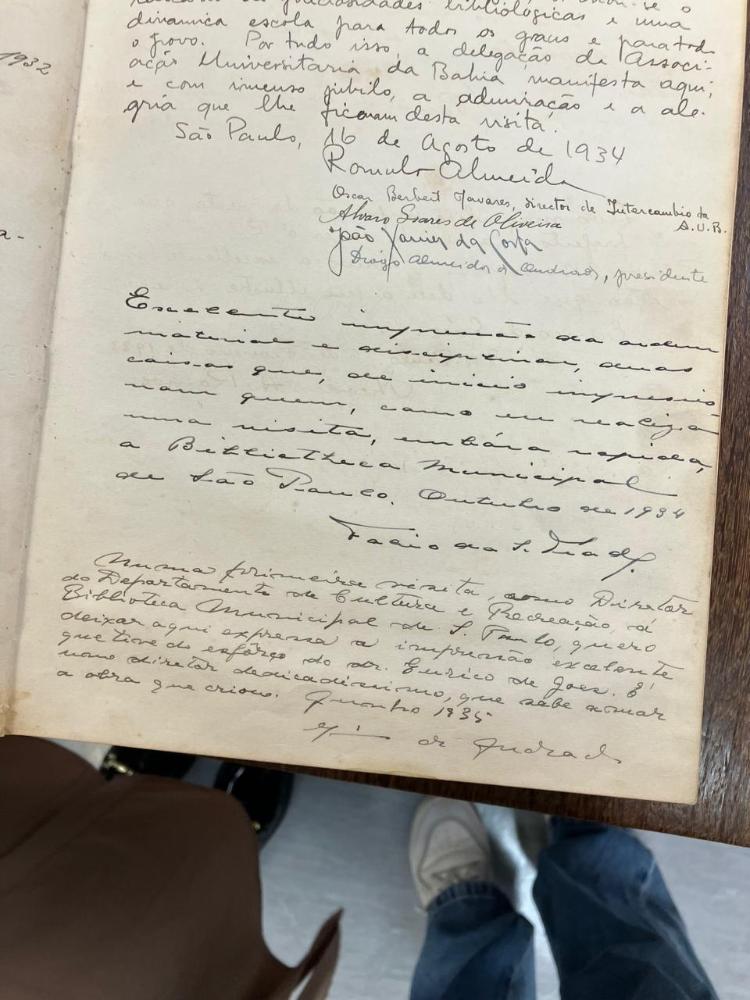 1932
a-
se o
bibliológicas e uma
dinamica escola para todos os graus e para todo
o povo. Por tudo isso, a delegação da Associ-
ação Universitaria da Bahia manifesta aqui,
e com imenso jubilo, a admiração e a ale-
gria que lhe ficaram desta visita.
São Paulo, 16 de Agosto de 1934
Romulo Almeida
Oscar Berbert Tavares, director de Intercambio da
A.U.B.
Alvaro Soares de Oliveira
João Xavier da Costa
Almeida de Andrade, presidente
Excellente impressão da ordem
material e disciplinar, duas
cousas que, de inicio impressio
nam quem, como eu realiza
uma visita, embóra rapida,
a Bibliotheca Municipal
de São Paulo. Outubro de 1934
da S.
Numa primeira visita, como Diretor
do Departamento de Cultura e Recreação, á
Biblioteca Municipal de S. Paulo, quero
deixar aqui expressa a impressão excelente
que tive do esfôrço do dr. Eurico de Goes. É
um diretor dedicadissimo, que sabe amar
a obra que criou. 1935
de Andrade